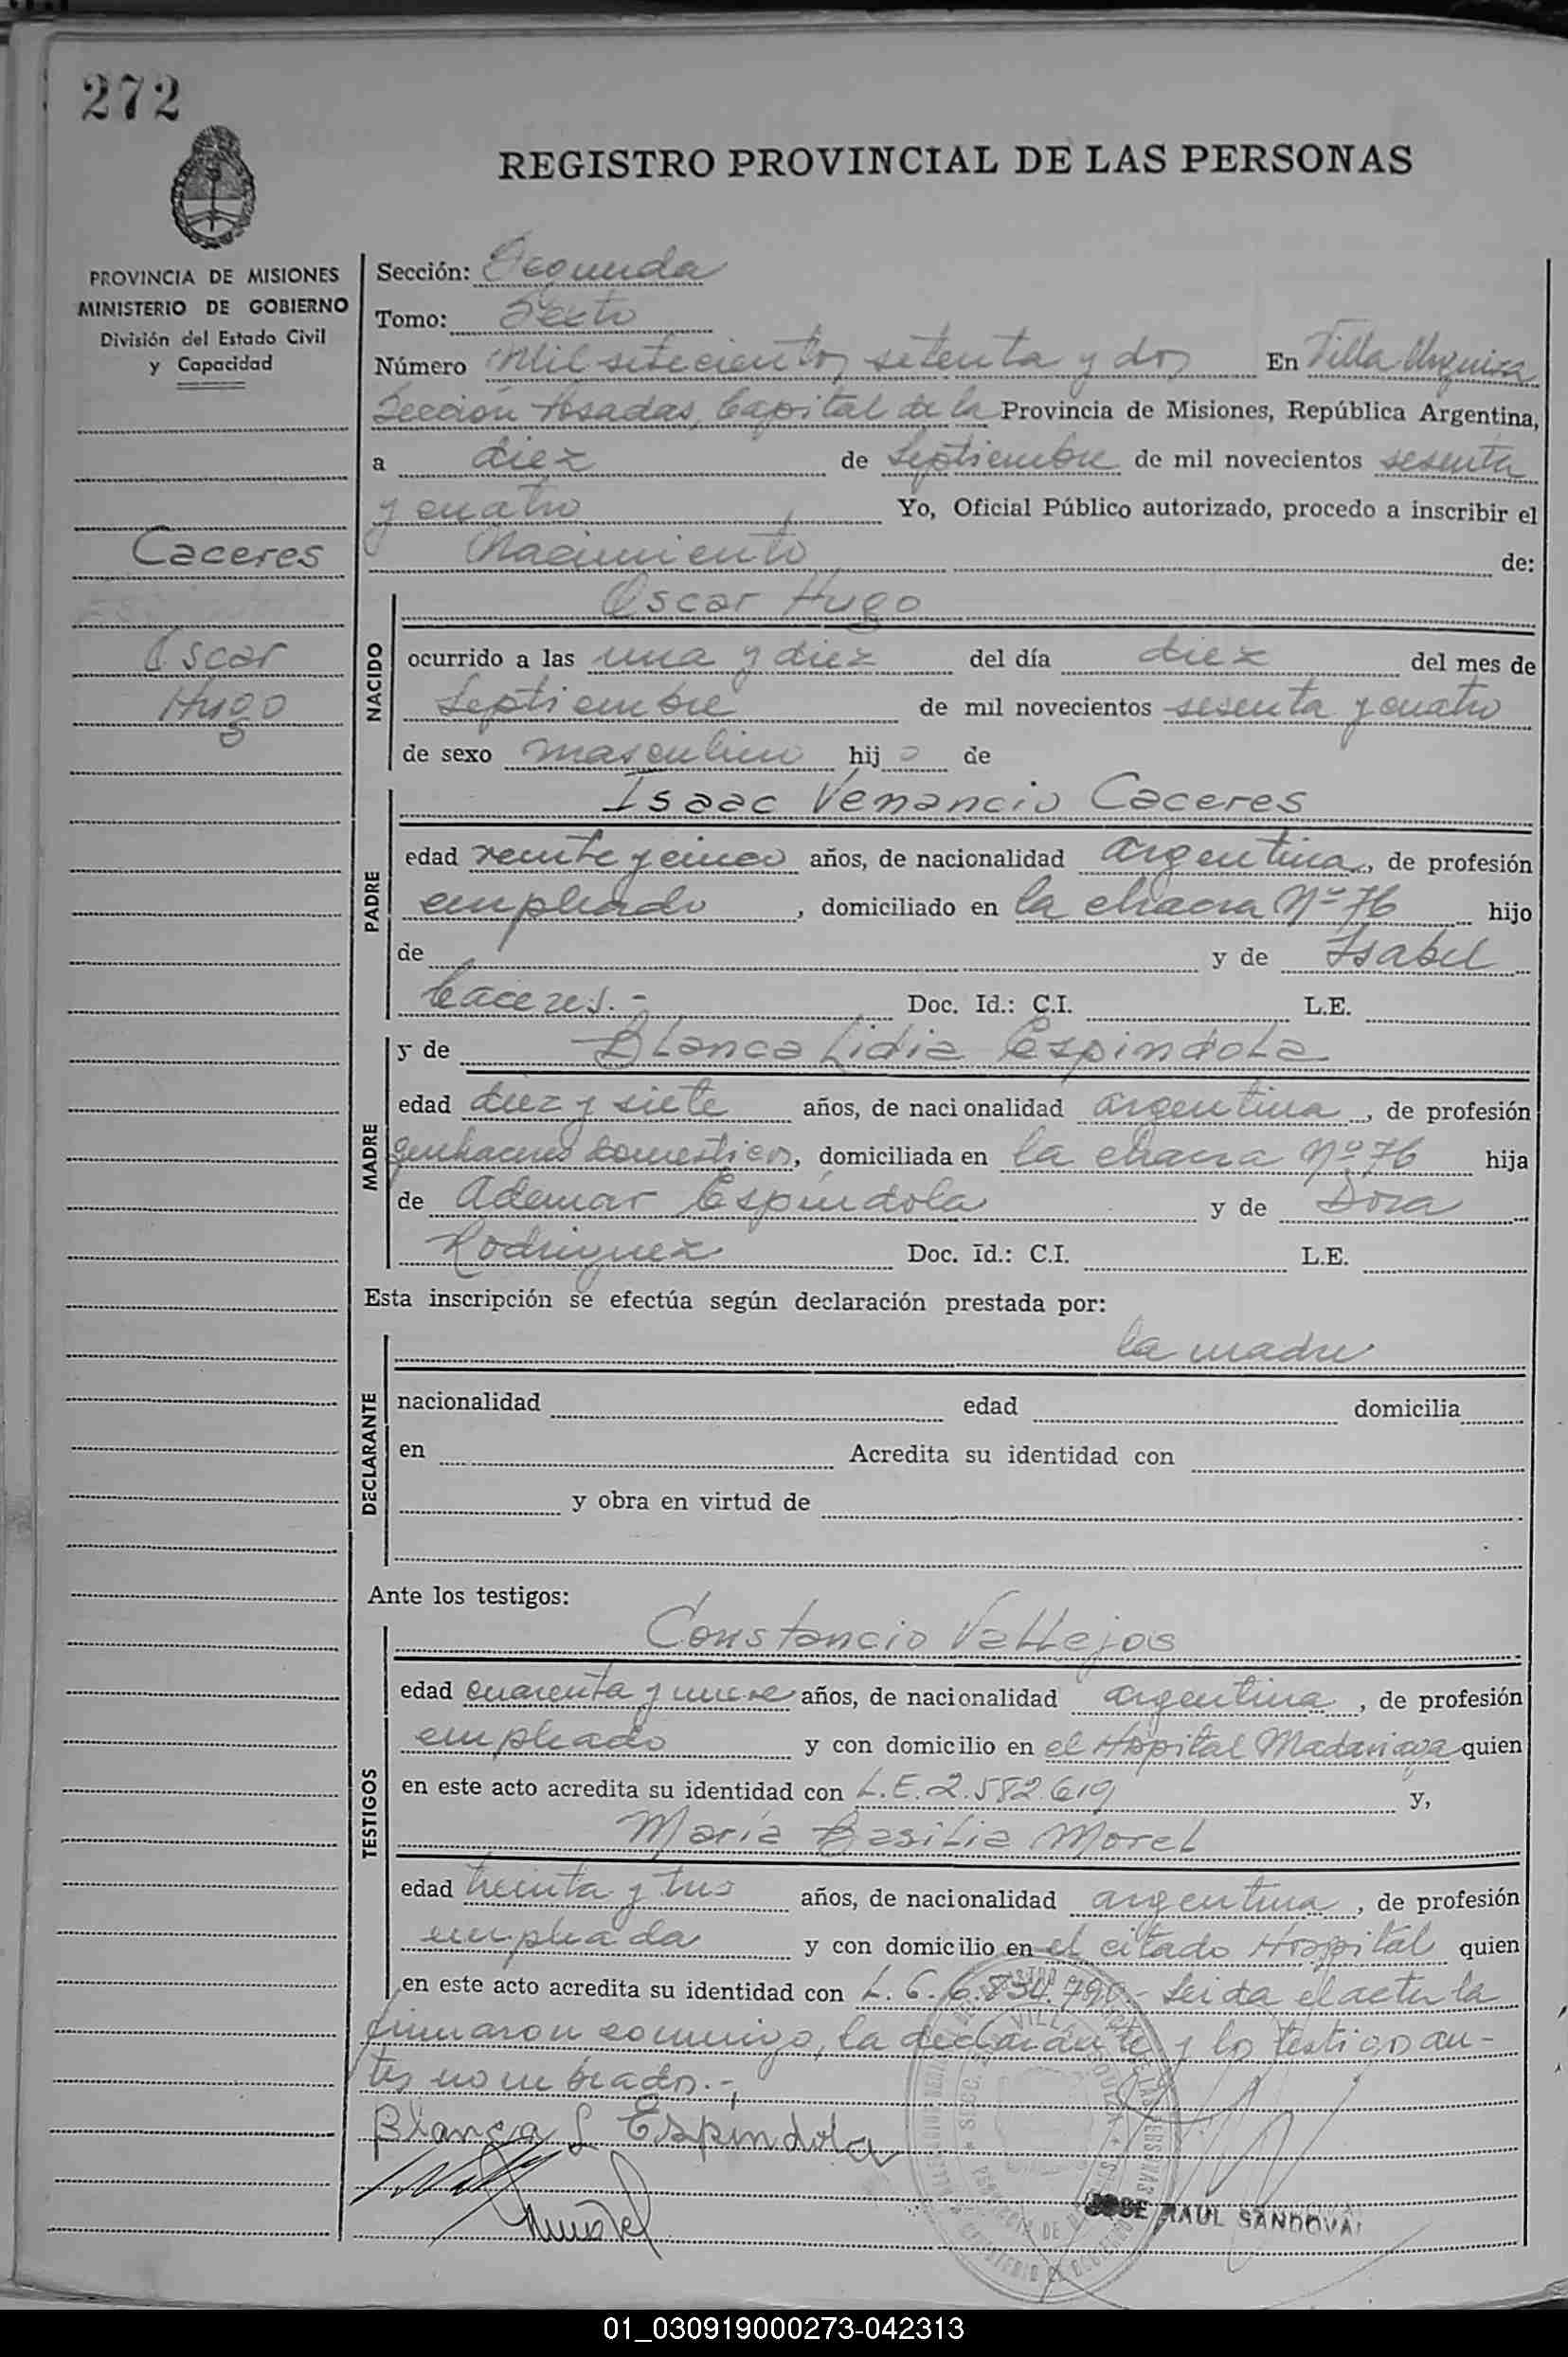 272
REGISTRO PROVINCIAL DE LAS PERSONAS
PROVINCIA DE MISIONES
MINISTERIO DE GOBIERNO
División del Estado Civil
y Capacidad
Caceres
Oscar
Hugo
Sección: Segunda
Tomo: Sexto
Número Mil setecientos setenta y dos En Villa Urquiza
Sección Posadas, Capital de la Provincia de Misiones, República Argentina,
a diez de Septiembre de mil novecientos sesenta
y cuatro Yo, Oficial Público autorizado, procedo a inscribir el
Nacimiento de:
NACIDO
Oscar Hugo
ocurrido a las una y diez del día diez del mes de
Septiembre de mil novecientos sesenta y cuatro
de sexo masculino hijo de
PADRE
Isaac Venancio Caceres
edad veinte y cinco años, de nacionalidad argentina, de profesión
empleado, domiciliado en la chacra Nº 76 hijo
de y de Isabel
Caceres.- Doc. Id.: C.I. L.E.
MADRE
y de Blanca Lidia Espindola
edad diez y siete años, de nacionalidad argentina, de profesión
quehaceres domesticos, domiciliada en la chacra Nº 76 hija
de Ademar Espindola y de Dora
Rodriguez Doc. Id.: C.I. L.E.
Esta inscripción se efectúa según declaración prestada por:
DECLARANTE
la madre
nacionalidad edad domicilia
en Acredita su identidad con
y obra en virtud de
Ante los testigos:
TESTIGOS
Constancio Vallejos
edad cuarenta y nueve años, de nacionalidad argentina, de profesión
empleado y con domicilio en el Hospital Madariaga quien
en este acto acredita su identidad con L.E. 2.582.619 y,
María Basilia Morel
edad treinta y tres años, de nacionalidad argentina, de profesión
empleada y con domicilio en el citado Hospital quien
en este acto acredita su identidad con L.C. 6.834.790.- Leida el acta la
firmaron conmigo, la declarante y los testigos an-
tes nombrados.-
Blanca L Espindola
JOSE RAUL SANDOVAL
01_030919000273-042313